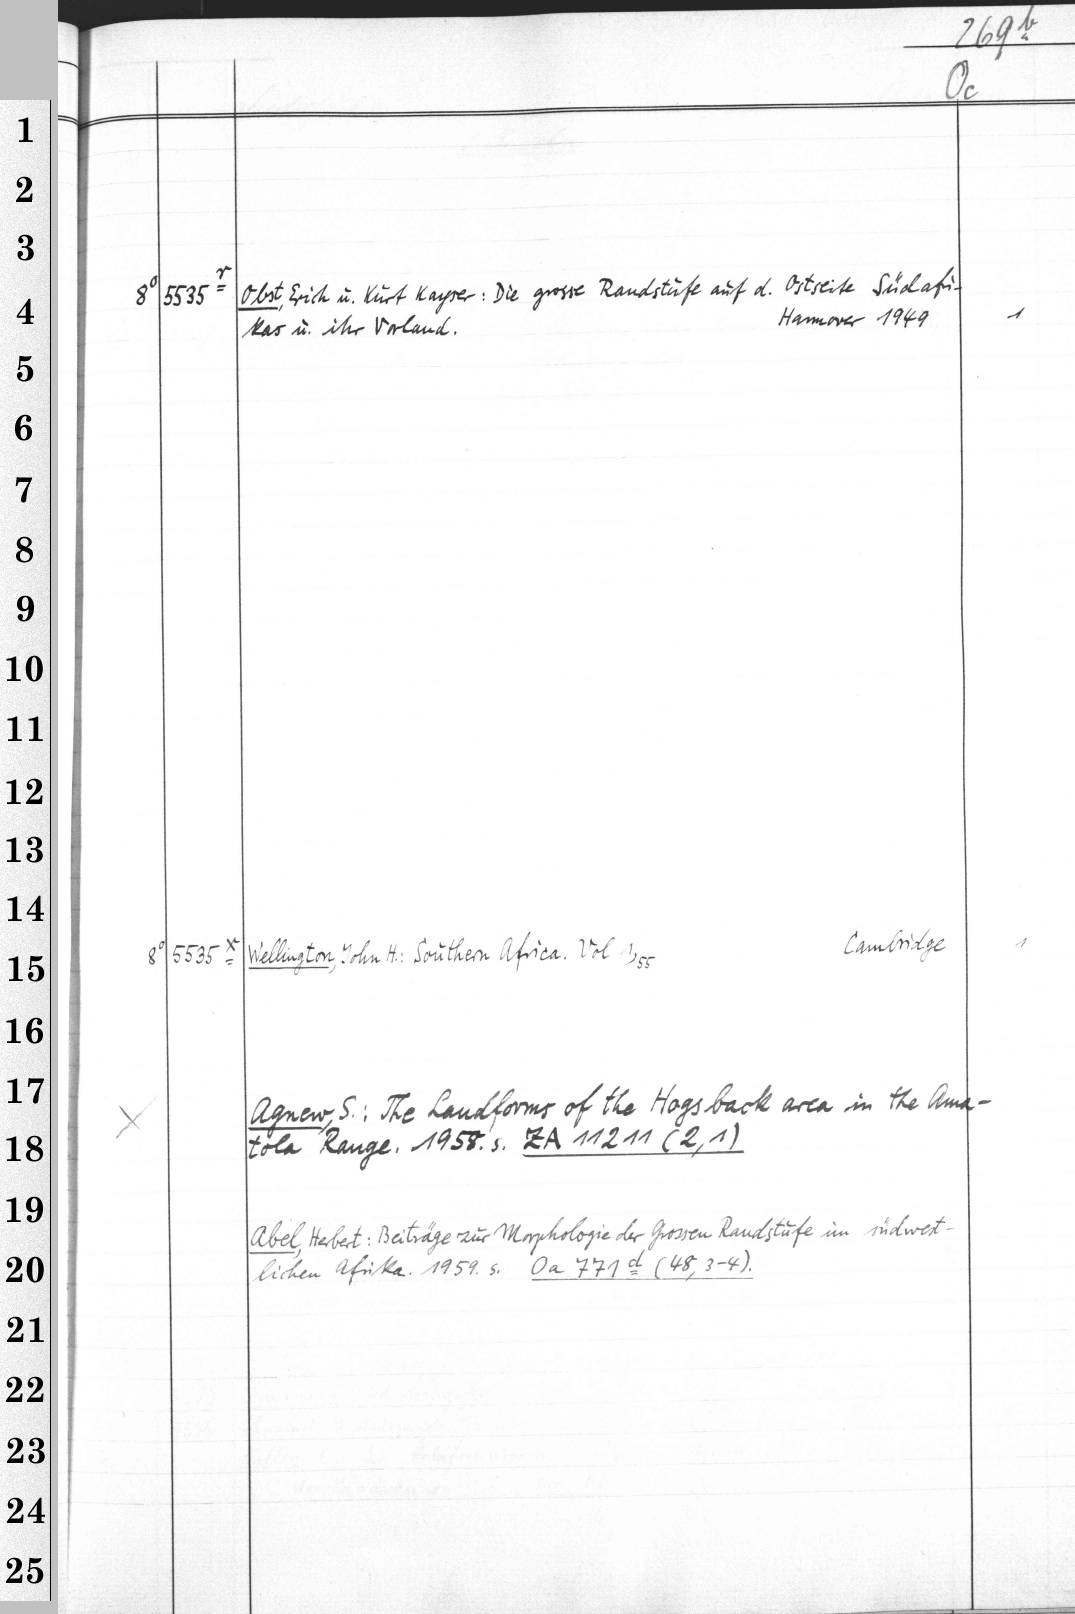 269 b
Oc
1
2
3
8° 5535 r Obst, Erich u. Kurt Kayser: Die grosse Randstufe auf d. Ostseite Südafri-
4
kas u. ihr Vorland. Hannover 1949 1
5
6
7
8
9
10
11
12
13
14
8° 5535 x Wellington, John H.: Southern Africa. Vol 1, 55 Cambridge 1
15
16
17
Agnew, S.: The Landforms of the Hogsback area in the Ama-
18
tola Range. 1958. s. ZA 11211 (2,1)
19
Abel, Herbert: Beiträge zur Morphologie der Grossen Randstufe im südwest-
20
lichen Afrika. 1959. s. Oa 771 d (48, 3-4).
21
22
23
24
25